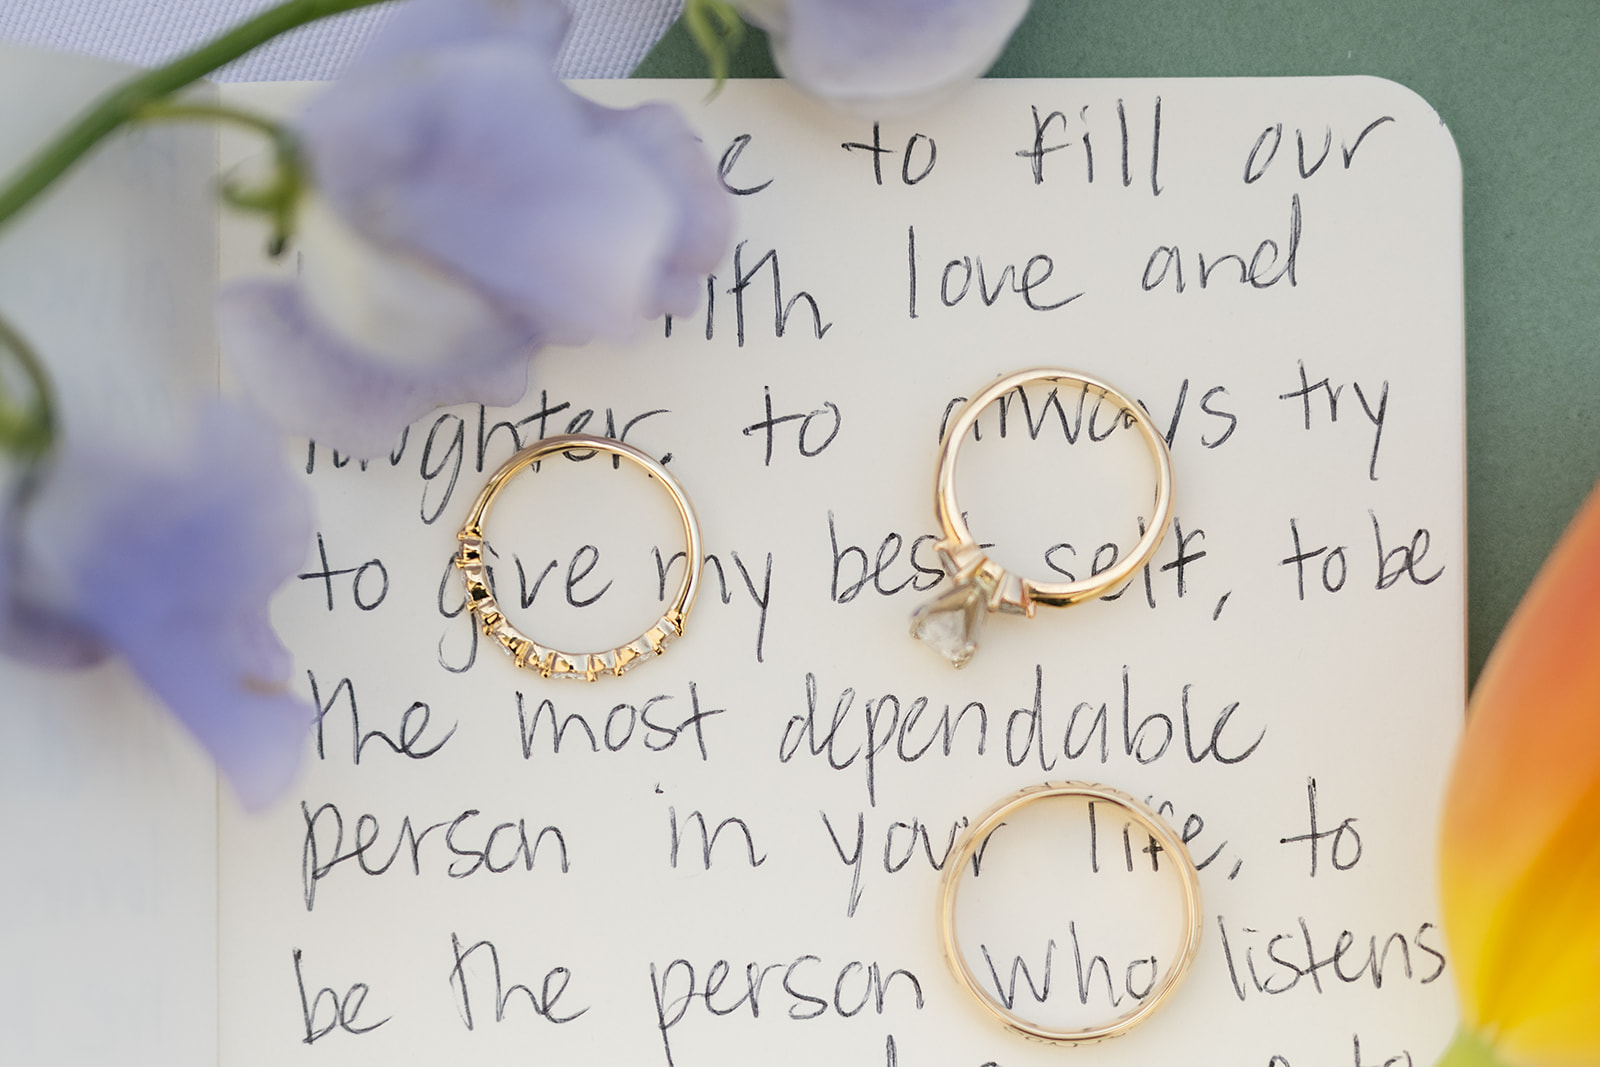 to fill our
with love and
laughter, to always try
to give my best self, to be
the most dependable
person in your life, to
be the person who listens
to